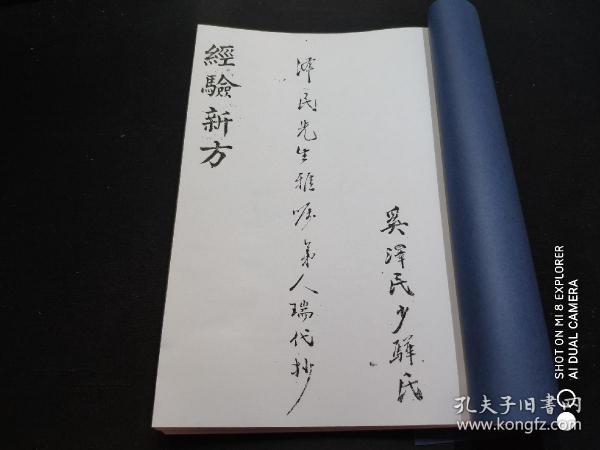 奚澤民少驊氏
澤民先生雅嘱弟人瑞代抄
經驗新方
SHOT ON MI 8 EXPLORER
AI DUAL CAMERA
孔夫子旧书网
www.kongfz.com